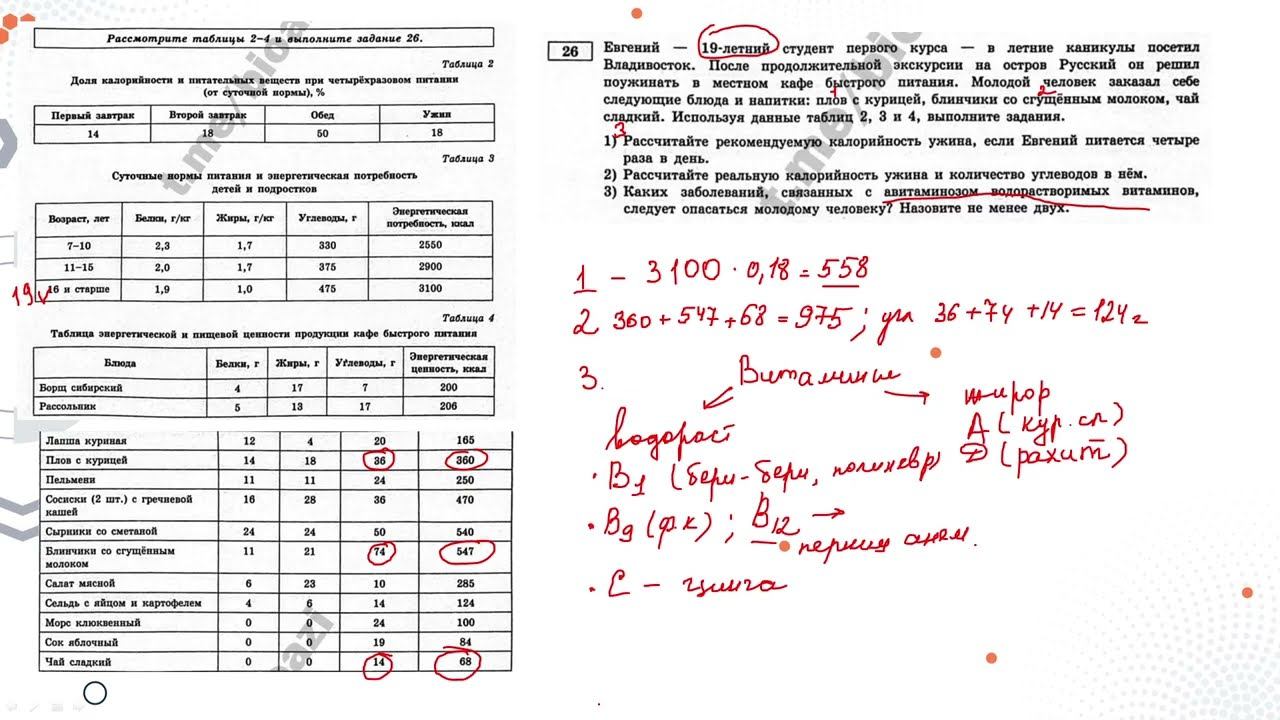 Рассмотрите таблицы 2–4 и выполните задание 26.
Таблица 2
Доля калорийности и питательных веществ при четырёхразовом питании
(от суточной нормы), %
Первый завтрак Второй завтрак Обед Ужин
14 18 50 18
Таблица 3
Суточные нормы питания и энергетическая потребность
детей и подростков
Возраст, лет Белки, г/кг Жиры, г/кг Углеводы, г Энергетическая потребность, ккал
7–10 2,3 1,7 330 2550
11–15 2,0 1,7 375 2900
19 16 и старше 1,9 1,0 475 3100
Таблица 4
Таблица энергетической и пищевой ценности продукции кафе быстрого питания
Блюда Белки, г Жиры, г Углеводы, г Энергетическая ценность, ккал
Борщ сибирский 4 17 7 200
Рассольник 5 13 17 206
Лапша куриная 12 4 20 165
Плов с курицей 14 18 36 360
Пельмени 11 11 24 250
Сосиски (2 шт.) с гречневой кашей 16 28 36 470
Сырники со сметаной 24 24 50 540
Блинчики со сгущённым молоком 11 21 74 547
Салат мясной 6 23 10 285
Сельдь с яйцом и картофелем 4 6 14 124
Морс клюквенный 0 0 24 100
Сок яблочный 0 0 19 84
Чай сладкий 0 0 14 68
26
Евгений — 19-летний студент первого курса — в летние каникулы посетил
Владивосток. После продолжительной экскурсии на остров Русский он решил
поужинать в местном кафе быстрого питания. Молодой человек заказал себе
1 2
следующие блюда и напитки: плов с курицей, блинчики со сгущённым молоком, чай
сладкий. Используя данные таблиц 2, 3 и 4, выполните задания.
3
1) Рассчитайте рекомендуемую калорийность ужина, если Евгений питается четыре
раза в день.
2) Рассчитайте реальную калорийность ужина и количество углеводов в нём.
3) Каких заболеваний, связанных с авитаминозом водорастворимых витаминов,
следует опасаться молодому человеку? Назовите не менее двух.
1 – 3100 · 0,18 = 558
2 360 + 547 + 68 = 975 ; угл 36 + 74 + 14 = 124 г
3. Витамины
водораст жирор
А (кур. сл)
• В1 (бери-бери, полиневр) Д (рахит)
• В9 (ф.к) ; В12 →
перниц анем.
• С – цинга